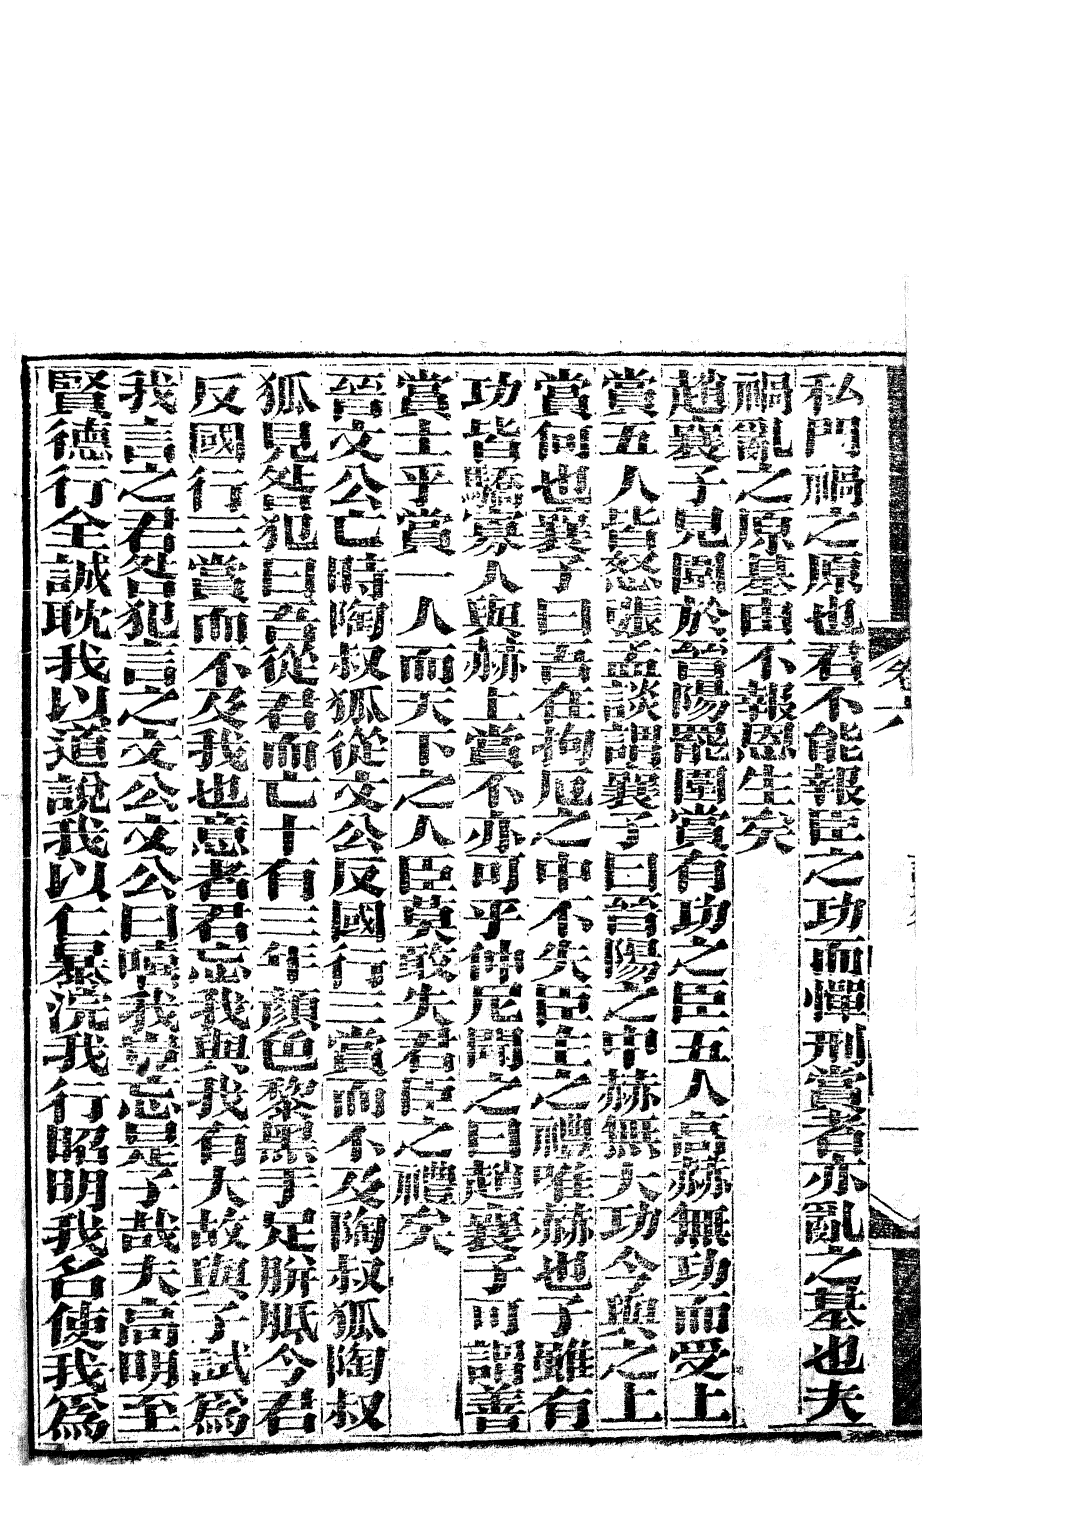 私門禍之原也君不能報臣之功而憚刑賞者亦亂之基也夫
禍亂之原基由不報恩生矣
趙襄子見圍於晉陽罷圍賞有功之臣五人高赫無功而受上
賞五人皆怒張孟談謂襄子曰晉陽之中赫無大功今與之上
賞何也襄子曰吾在拘厄之中不失臣主之禮唯赫也子雖有
功皆驕寡人與赫上賞不亦可乎仲尼聞之曰趙襄子可謂善
賞士乎賞一人而天下之人臣莫敢失君臣之禮矣
晉文公亡時陶叔狐從文公反國行三賞而不及陶叔狐陶叔
狐見咎犯曰吾從君而亡十有三年顏色黎黑手足胼胝今君
反國行三賞而不及我也意者君忘我與我有大故與子試爲
我言之君咎犯言之文公文公曰嘻我豈忘是子哉夫高明至
賢德行全誠耽我以道說我以仁暴浣我行昭明我名使我爲
卷六